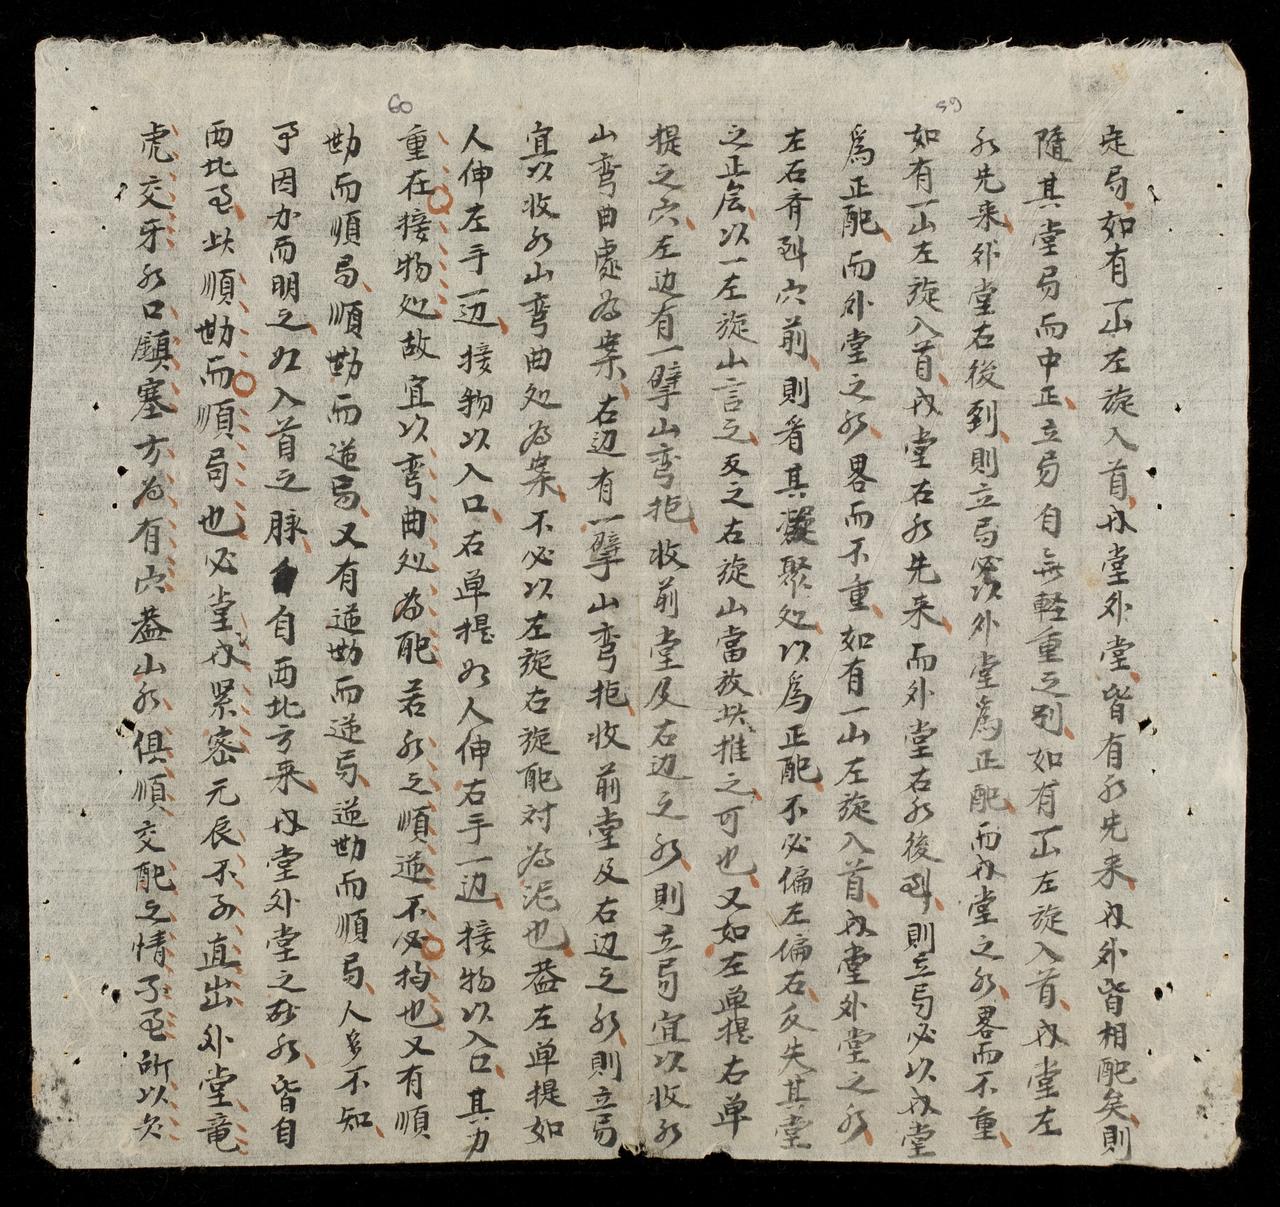 59
定局如有一山左旋入首内堂外堂皆有水先来内外皆相配矣則
隨其堂局而中正立局自無軽重之别如有一山左旋入首内堂左
水先来外堂右後到則立局必以外堂爲正配而内堂之水畧而不重
如有一山左旋入首内堂右水先来而外堂右水後到則立局必以内堂
爲正配而外堂之水畧而不重如有一山左旋入首内堂外堂之水
左右齊到穴前則看其凝聚处以爲正配不必偏左偏右反失其堂
之正居以一左旋山言之反之右旋山當放此推之可也又如左单提右单
提之穴左边有一臂山弯抱收前堂及右边之水則立局宜以收水
山弯曲處为案右边有一臂山弯抱收前堂及右边之水則立局
60
宜以收水山弯曲处为案不必以左旋右旋配对为泥也盖左单提如
人伸左手一边接物以入口右单提如人伸右手一边接物以入口其力
重在接物处故宜以弯曲处为配若水之順逆不必拘也又有順
勘而順局順勘而逆局又有逆勘而逆局逆勘而順局人多不知
予因力而明之如入首之脉自西北方来内堂外堂之砂水皆自
西北至此順勘而順局也必堂内累密元辰不子直出外堂竜
虎交牙水口鎮塞方为有穴盖山水俱順交配之情不至所以欠